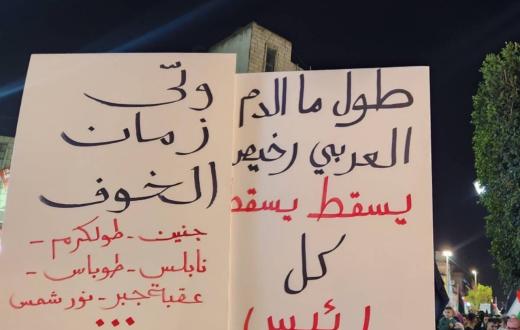 طول ما الدم
العربي رخيص
يسقط يسقط
كل
رئيس
ولّى
زمان
الخوف
جنين - طولكرم -
نابلس - طوباس -
عقبة جبر - نور شمس
...